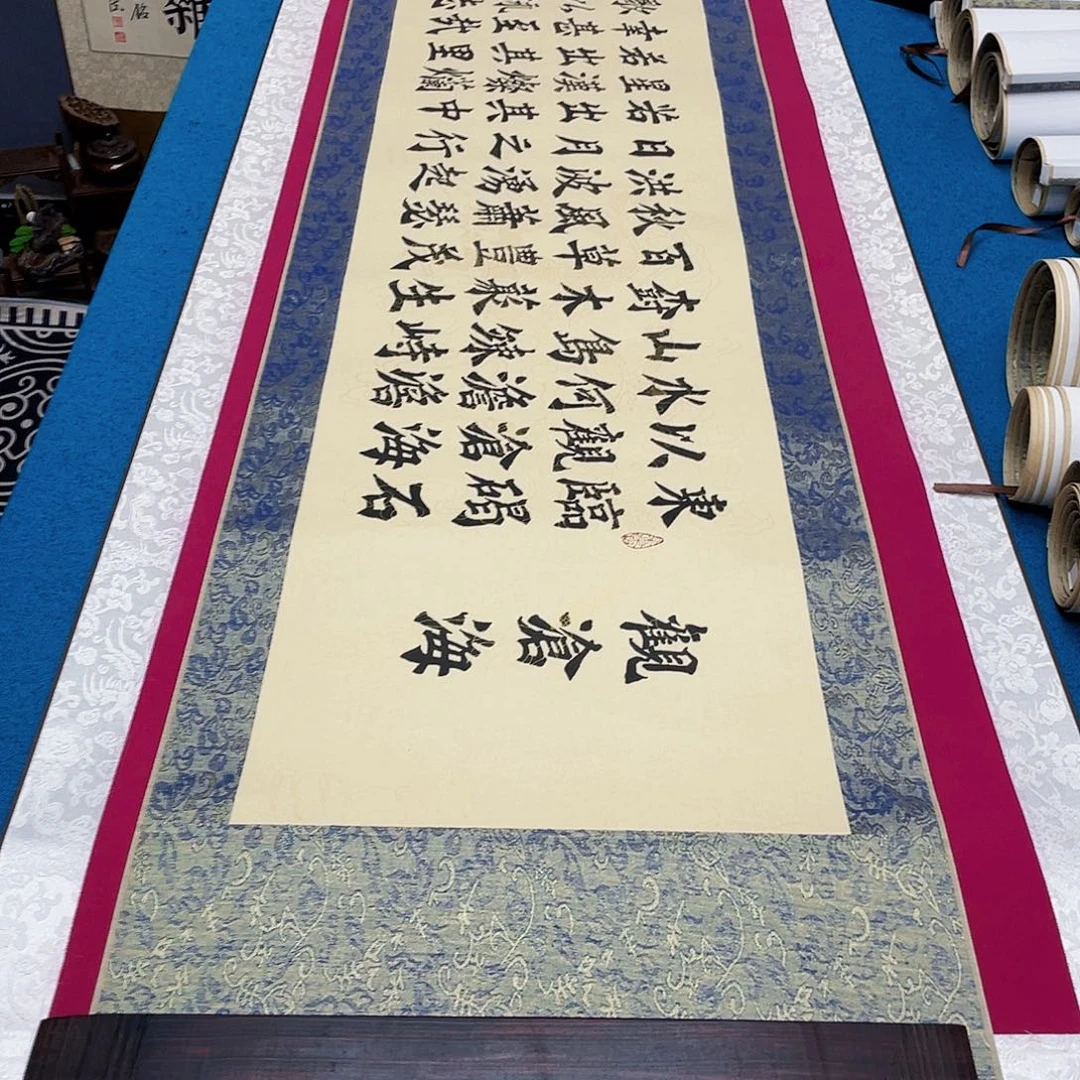 觀滄海
東臨碣石
以觀滄海
水何澹澹
山島竦峙
木叢生
百草豐茂
秋風蕭瑟
洪波湧起
日月之行
若出其中
星漢燦爛
若出其里
幸甚至哉
歌以